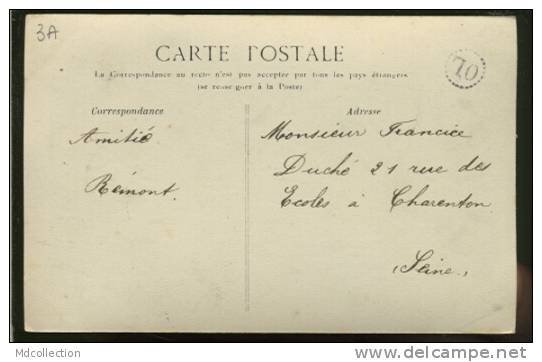 3A
CARTE POSTALE
La Correspondance au recto n'est pas acceptée par tous les pays étrangers
(se renseigner à la Poste)
Correspondance
Adresse
Amitié
Rémont.
Monsieur Francice
Duché 21 rue des
Ecoles à Charenton
(Seine)
Mdcollection
delcampe.net